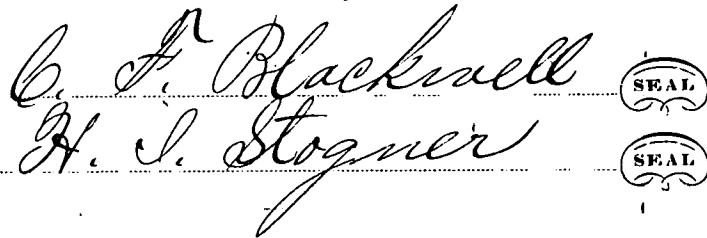 C. F. Blackwell SEAL
H. I. Stogner SEAL